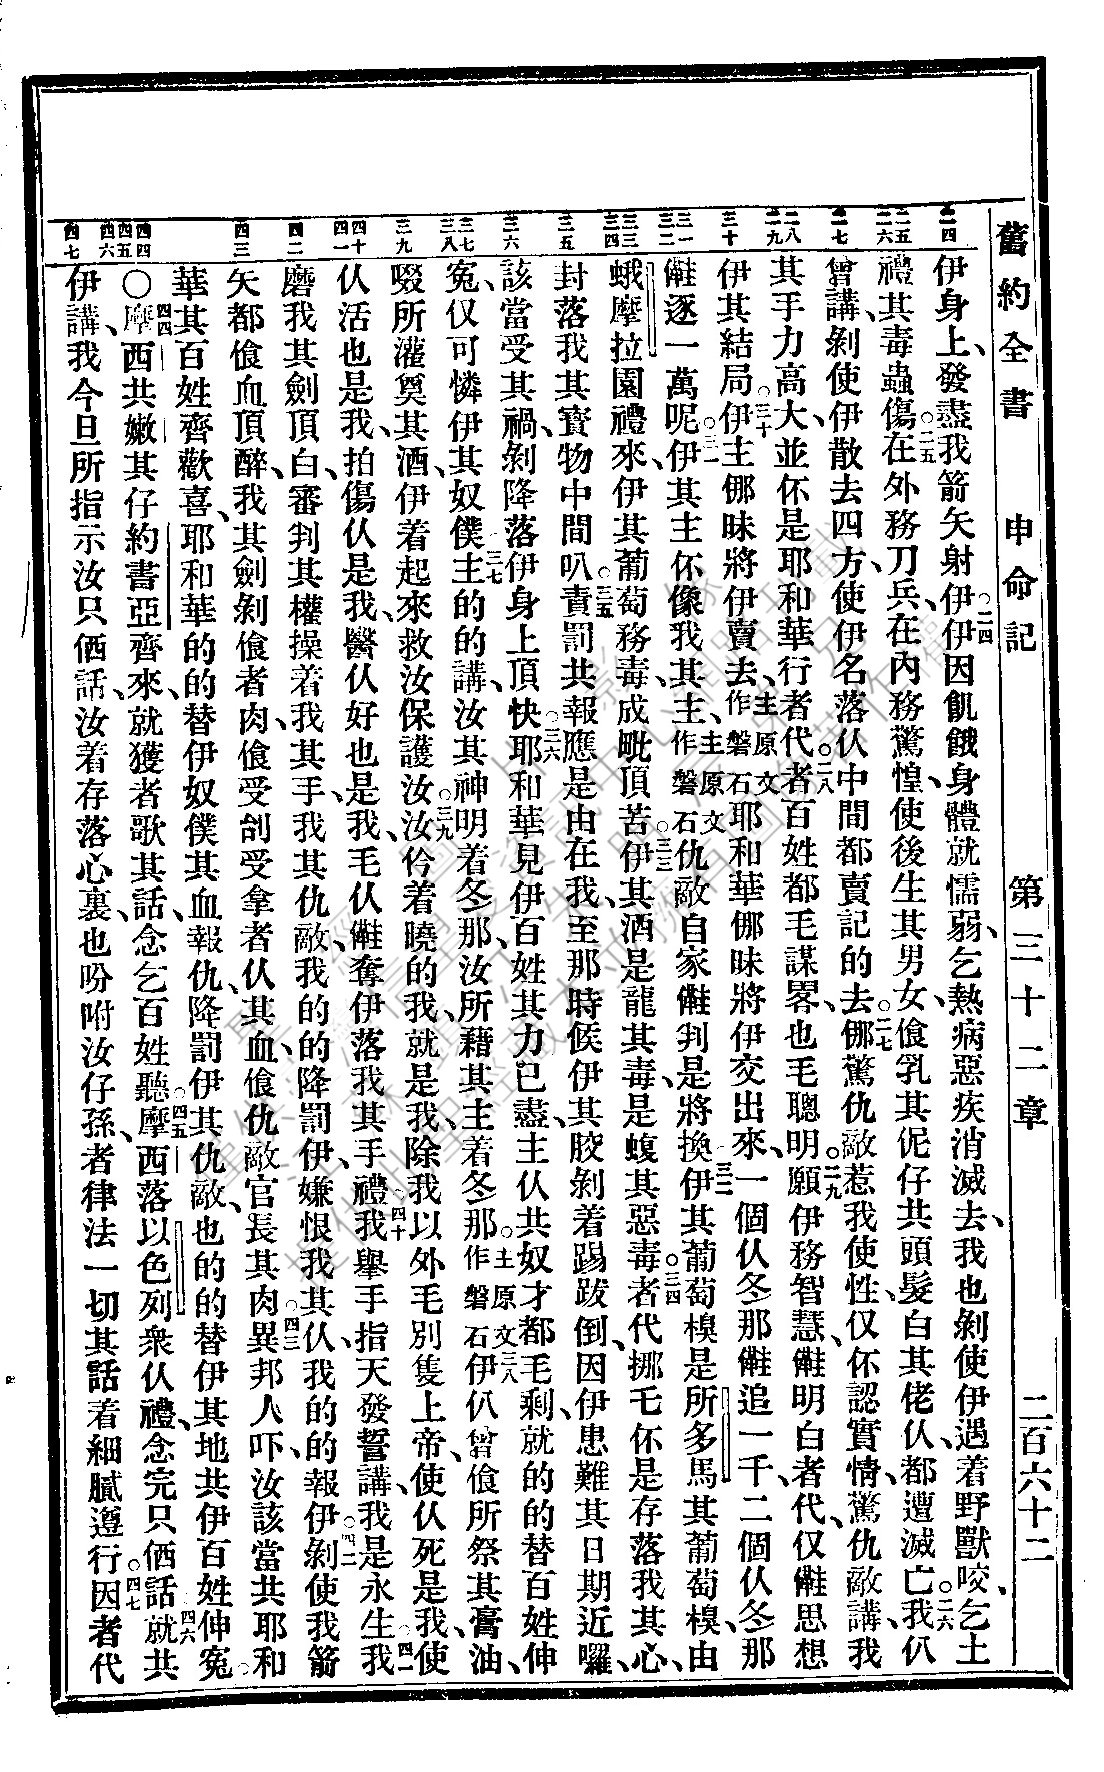 舊約全書 申命記 第三十二章 二百六十二
伊身上、發盡我箭矢射伊、○二四伊因飢餓身體就懦弱、乞熱病惡疾消滅去、我也剝使伊遇着野獸咬、乞土
禮其毒蟲傷、○二五在外務刀兵、在內務驚惶、使後生其男女、食乳其伲仔、共頭髮白其佬仈、都遭滅亡、○二六我仈
曾講、剝使伊散去四方、使伊名落仈中間都賣記的去、○二七倻驚仇敵惹我使性、仅伓認實情、驚仇敵講、我
其手力高大、並伓是耶和華行者代、○二八者百姓都毛謀畧、也毛聰明、○二九願伊務智慧、㒰明白者代、仅㒰思想
伊其結局、○三十伊主倻昧將伊賣去、主原文作磐石耶和華倻昧將伊交出來、一個仈冬那㒰追一千、二個仈冬那
㒰逐一萬呢、○三一伊其主伓像我其主、主原文作磐石仇敵自家㒰判是將換、○三二伊其葡萄模是所多馬其葡萄模、由
蛾摩拉園禮來、伊其葡萄務毒、成毗頂苦、○三三伊其酒是龍其毒、是蝮其惡毒、○三四者代挪乇伓是存落我其心、
封落我其寶物中間叭、○三五責罰共報應是由在我、至那時候、伊其骹剝着踢跋倒、因伊患難其日期近囉、
該當受其禍、剝降落伊身上頂快、○三六耶和華見伊百姓其力已盡、主仈共奴才都毛剩、就的的替百姓伸
冤、仅可憐伊其奴僕、○三七主的的講、汝其神明着冬那、汝所藉其主着冬那、主原文作磐石○三八伊仈曾食所祭其膏油、
啜所灌奠其酒、伊着起來救汝保護汝、○三九汝仱着曉的我、就是我、除我以外毛別隻上帝、使仈死是我、使
仈活也是我、拍傷仈是我、醫仈好也是我、毛仈㒰奪伊落我其手禮、○四十我舉手指天發誓講、我是永生、○四一我
磨我其劍頂白、審判其權操着我其手、我其仇敵、我的的降罰伊、嫌恨我其仈、我的的報伊、○四二剝使我箭
矢都食血頂醉、我其劍剝食者肉、食受刣受拿者仈其血、食仇敵官長其肉、○四三異邦人吓、汝該當共耶和
華其百姓齊歡喜、耶和華的的替伊奴僕其血報仇、降罰伊其仇敵、也的的替伊其地共伊百姓伸冤、○
○四四摩西共嫩其仔約書亞齊來、就獲者歌其話、念乞百姓聽、○四五摩西落以色列衆仈禮、念完只㑚話、○四六就共
伊講、我今旦所指示汝只㑚話、汝着存落心裏、也吩咐汝仔孫、者律法一切其話着細膩遵行、○四七因者代